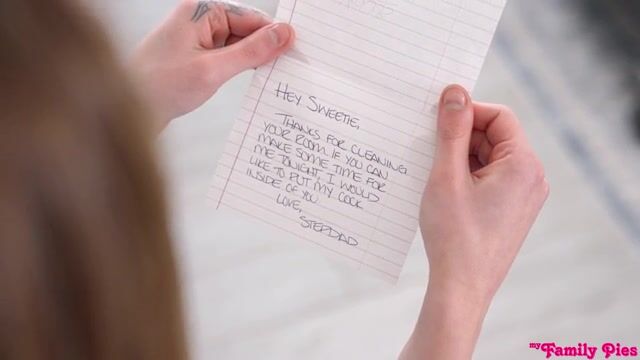 HEY SWEETIE,
THANKS FOR CLEANING
YOUR ROOM. IF YOU CAN
MAKE SOME TIME FOR
ME TONIGHT, I WOULD
LIKE TO PUT MY COCK
INSIDE OF YOU
LOVE,
STEPDAD
my Family Pies